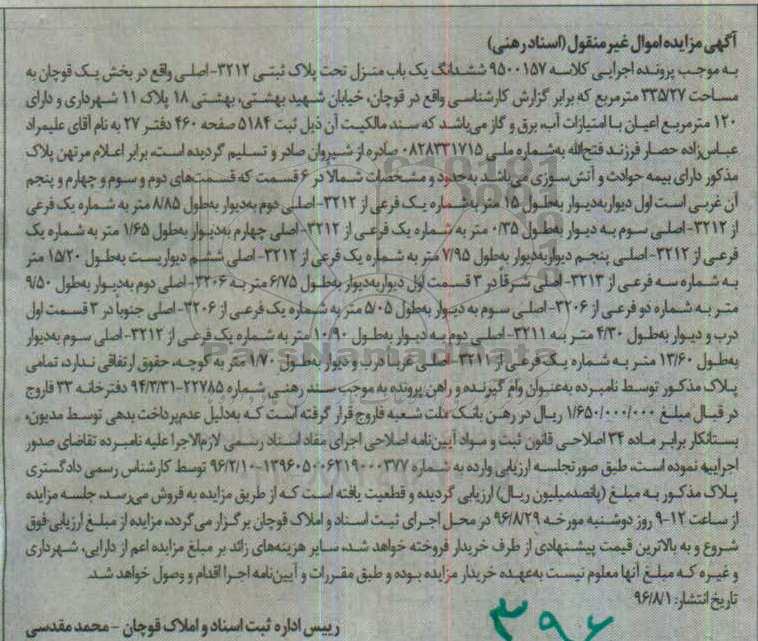 آگهی مزایده اموال غیر منقول (اسناد رهنی)
به موجب پرونده اجرایی کلاسه ۹۵۰۰۱۵۷ ششدانگ یک باب منزل تحت پلاک ثبتی ۳۲۱۲- اصلی واقع در بخش یک قوچان به
مساحت ۳۳۵/۲۷ مترمربع که برابر گزارش کارشناسی واقع در قوچان، خیابان شهید بهشتی، بهشتی ۱۸ پلاک ۱۱ شهرداری و دارای
۱۲۰ مترمربع اعیان با امتیازات آب، برق و گاز می‌باشد که سند مالکیت آن ذیل ثبت ۵۱۸۴ صفحه ۴۶۰ دفتر ۲۷ به نام آقای علیمراد
عباس‌زاده حصار فرزند فتح‌الله به‌شماره ملی ۰۸۲۸۳۳۱۷۱۵ صادره از شیروان صادر و تسلیم گردیده است، برابر اعلام مرتهن پلاک
مذکور دارای بیمه حوادث و آتش‌سوزی می‌باشد به‌حدود و مشخصات شمالا در ۶ قسمت که قسمت‌های دوم و سوم و چهارم و پنجم
آن غربی است اول دیواربه‌دیوار به‌طول ۱۵ متر به‌شماره یک فرعی از ۳۲۱۲- اصلی دوم به‌دیوار به‌طول ۸/۸۵ متر به شماره یک فرعی
از ۳۲۱۲- اصلی سوم به دیوار به‌طول ۰/۳۵ متر به شماره یک فرعی از ۳۲۱۲- اصلی چهارم به‌دیوار به‌طول ۱/۶۵ متر به شماره یک
فرعی از ۳۲۱۲- اصلی پنجم دیواربه‌دیوار به‌طول ۷/۹۵ متر به شماره یک فرعی از ۳۲۱۲- اصلی ششم دیواریست به‌طول ۱۵/۲۰ متر
به شماره سه فرعی از ۳۲۱۳- اصلی شرقاً در ۳ قسمت اول دیواربه‌دیوار به‌طول ۶/۷۵ متر به ۳۲۰۶- اصلی دوم به‌دیوار به‌طول ۹/۵۰
متر به شماره دو فرعی از ۳۲۰۶- اصلی سوم به دیوار به‌طول ۵/۰۵ متر به شماره یک فرعی از ۳۲۰۶- اصلی جنوباً در ۳ قسمت اول
درب و دیوار به‌طول ۴/۳۰ متر به ۳۲۱۱- اصلی دوم به دیوار به‌طول ۱۰/۹۰ متر به شماره یک فرعی از ۳۲۱۲- اصلی سوم به‌دیوار
به‌طول ۱۳/۶۰ متر به شماره یک فرعی از ۳۲۱۱- اصلی غرباً درب و دیوار به‌طول ۹/۷۰ متر به کوچه، حقوق ارتفاقی ندارد، تمامی
پلاک مذکور توسط نامبرده به‌عنوان وام گیرنده و راهن پرونده به موجب سند رهنی شماره ۲۲۷۸۵-۹۴/۳/۳۱ دفترخانه ۳۳ فاروج
در قبال مبلغ ۱/۶۵۰/۰۰۰/۰۰۰ ریال در رهن بانک ملت شعبه فاروج قرار گرفته است که به‌دلیل عدم‌پرداخت بدهی توسط مدیون،
بستانکار برابر ماده ۳۴ اصلاحی قانون ثبت و مواد آیین‌نامه اصلاحی اجرای مفاد اسناد رسمی لازم‌الاجرا علیه نامبرده تقاضای صدور
اجراییه نموده است، طبق صورتجلسه ارزیابی وارده به شماره ۱۳۹۶۰۵۰۰۶۲۱۹۰۰۰۳۷۷-۹۶/۲/۱۰ توسط کارشناس رسمی دادگستری
پلاک مذکور به مبلغ (پانصدمیلیون ریال) ارزیابی گردیده و قطعیت یافته است که از طریق مزایده به فروش می‌رسد، جلسه مزایده
از ساعت ۱۲-۹ روز دوشنبه مورخه ۹۶/۸/۲۹ در محل اجرای ثبت اسناد و املاک قوچان برگزار می‌گردد، مزایده از مبلغ ارزیابی فوق
شروع و به بالاترین قیمت پیشنهادی از طرف خریدار فروخته خواهد شد، سایر هزینه‌های زائد بر مبلغ مزایده اعم از دارایی، شهرداری
و غیره که مبلغ آنها معلوم نیست به‌عهده خریدار مزایده بوده و طبق مقررات و آیین‌نامه اجرا اقدام و وصول خواهد شد.
تاریخ انتشار: ۹۶/۸/۱
رییس اداره ثبت اسناد و املاک قوچان - محمد مقدسی
۳۹۶
ParsNamadData